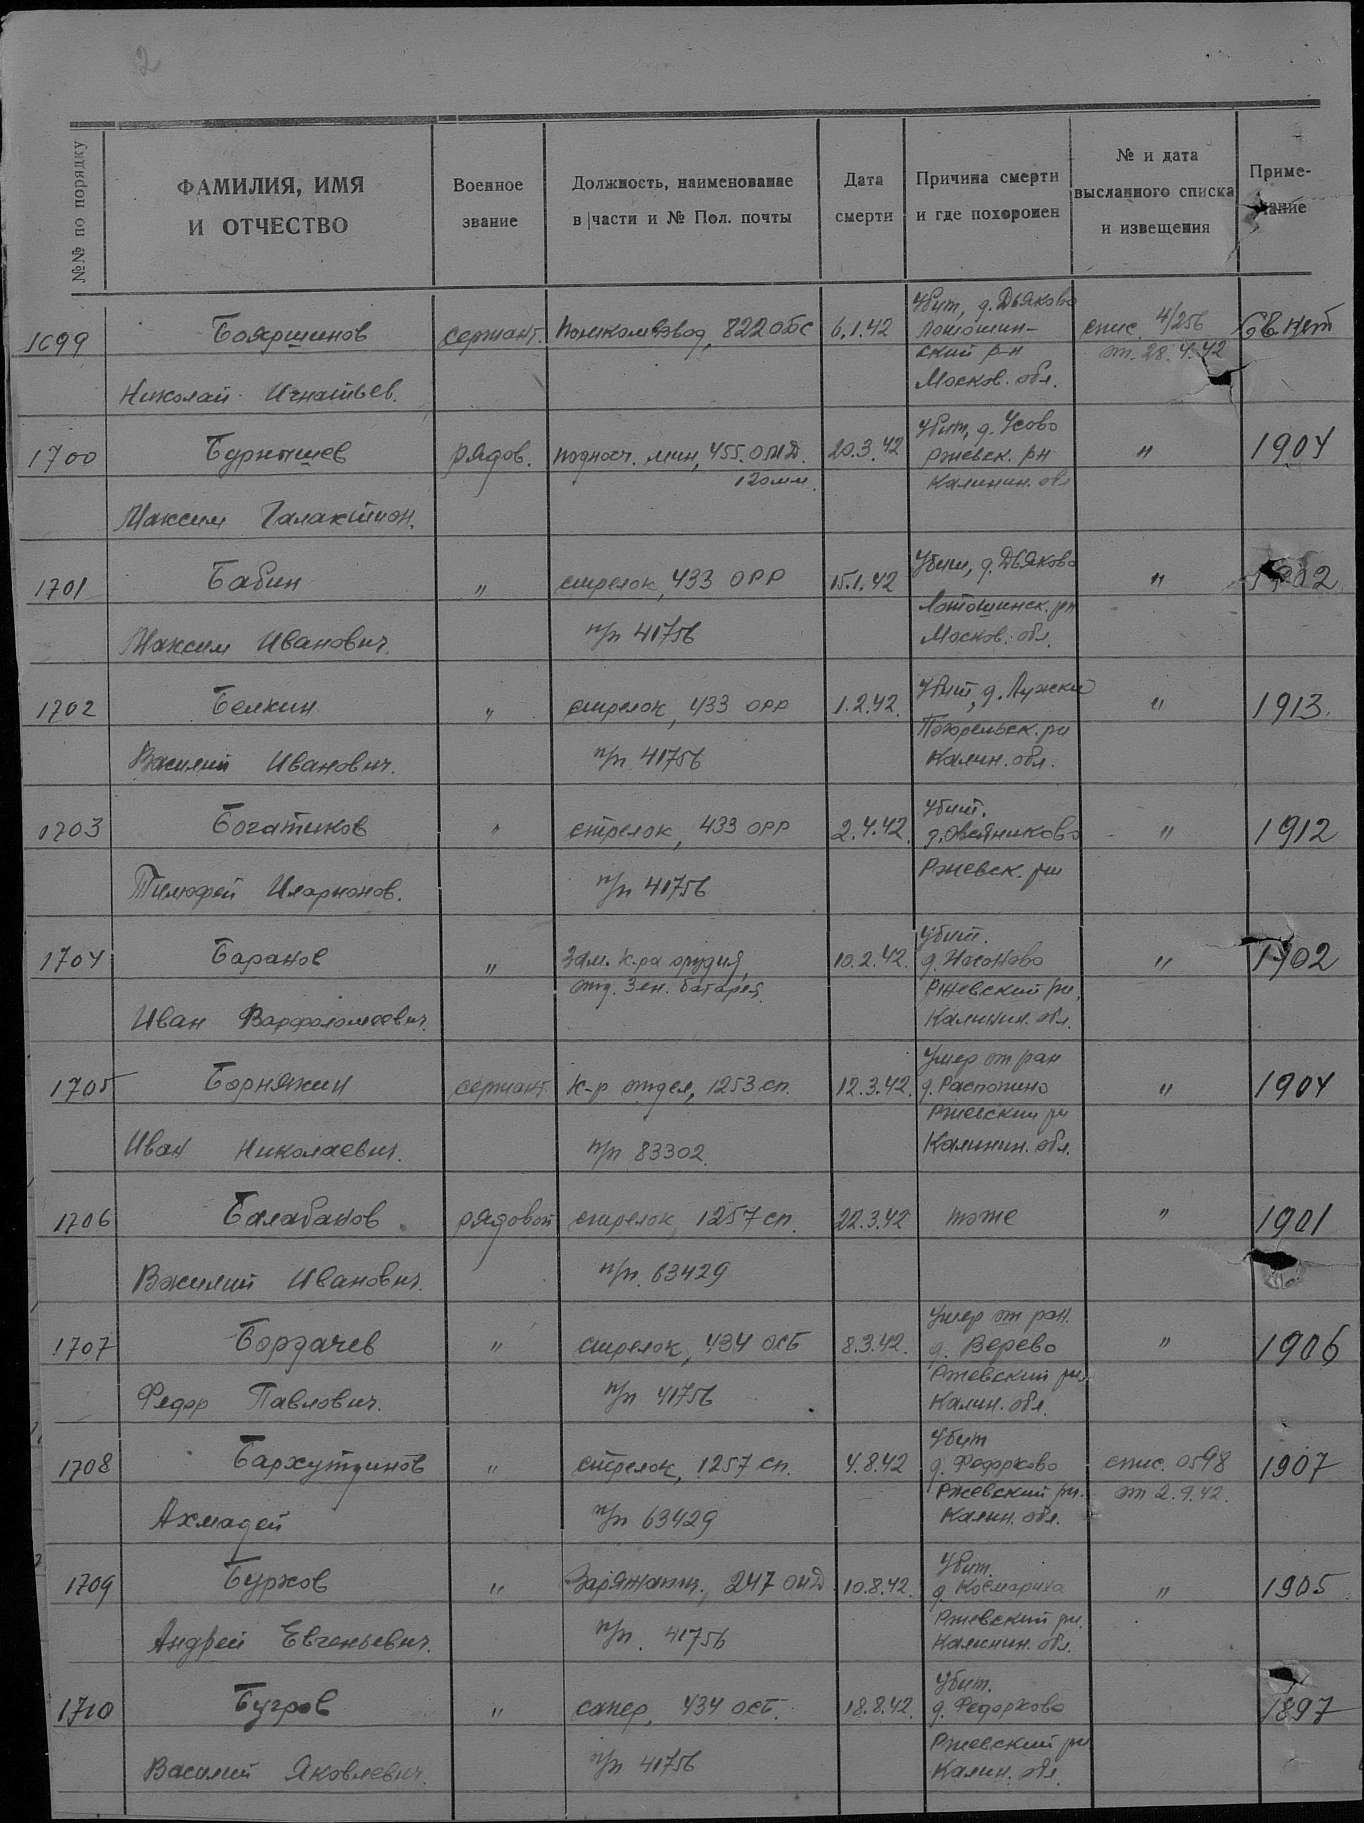 2
№№ по порядку
ФАМИЛИЯ, ИМЯ
И ОТЧЕСТВО
Военное
звание
Должность, наименование
в части и № Пол. почты
Дата
смерти
Причина смерти
и где похоронен
№ и дата
высланного списка
и извещения
Приме-
чание
1699 Бояршинов сержант. помкомвзвод, 822 обс 6.1.42 Убит, д. Дьяково спис. 4/256 св. нет
Лотошин-
ский р-н от. 28.4.42
Николай Игнатьев. Москов. обл.
1700 Бурнышев рядов. поднось. мин, 455. ОМД. 20.3.42 Убит, д. Усово " 1904
120мм. ржевск. рн
Калинин. обл
Максим Галактион.
1701 Бабин " стрелок, 433 ОРР 15.1.42 Убит, д. Дьяково " 1902
Лотошинск. рн
Максим Иванович. п/п 41756 Москов. обл.
1702 Белкин " стрелок, 433 ОРР 1.2.42. Убит, д. Лужки " 1913.
Погорельск. рн
Василий Иванович. п/п 41756 Калин. обл.
1703 Богатиков " стрелок, 433 ОРР 2.4.42. Убит. " 1912
д. Овсянниково
Тимофей Иларионов. п/п 41756 Ржевск. рн
1704 Баранов " Зам. к-ра орудия, 10.2.42. Убит. " 1902
отд. Зен. батарея. д. Носоново
Ржевский рн.
Иван Варфоломеевич. Калинин. обл.
1705 Борняжин сержант к-р отдел, 1253 сп. 12.3.42. Умер от ран " 1904
д. Распопино
Ржевский рн
Иван Николаевич. п/п 83302. Калинин. обл.
1706 Балабанов рядовой стрелок, 1257 сп. 22.3.42 тоже " 1901
Василий Иванович. п/п. 63429
1707 Бордачев " стрелок, 434 ОСБ 8.3.42. Умер от ран. " 1906
д. Верево
Ржевский рн.
Федор Павлович. п/п 41756 Калин. обл.
1708 Бархутдинов " стрелок, 1257 сп. 4.8.42 Убит спис. 0598 1907
д. Федорково
Ржевский рн. от 2.9.42.
Ахмадей п/п 63429 Калин. обл.
1709 Бурков " Заряжающ., 247 ОИД 10.8.42. Убит. " 1905
д. Космариха
Ржевский рн.
Андрей Евгеньевич. п/п. 41756 Калинин. обл.
1710 Бугров " сапер, 434 ОСБ. 18.8.42. Убит. 1897
д. Федорково
Ржевский рн
Василий Яковлевич. п/п 41756 Калин. обл.